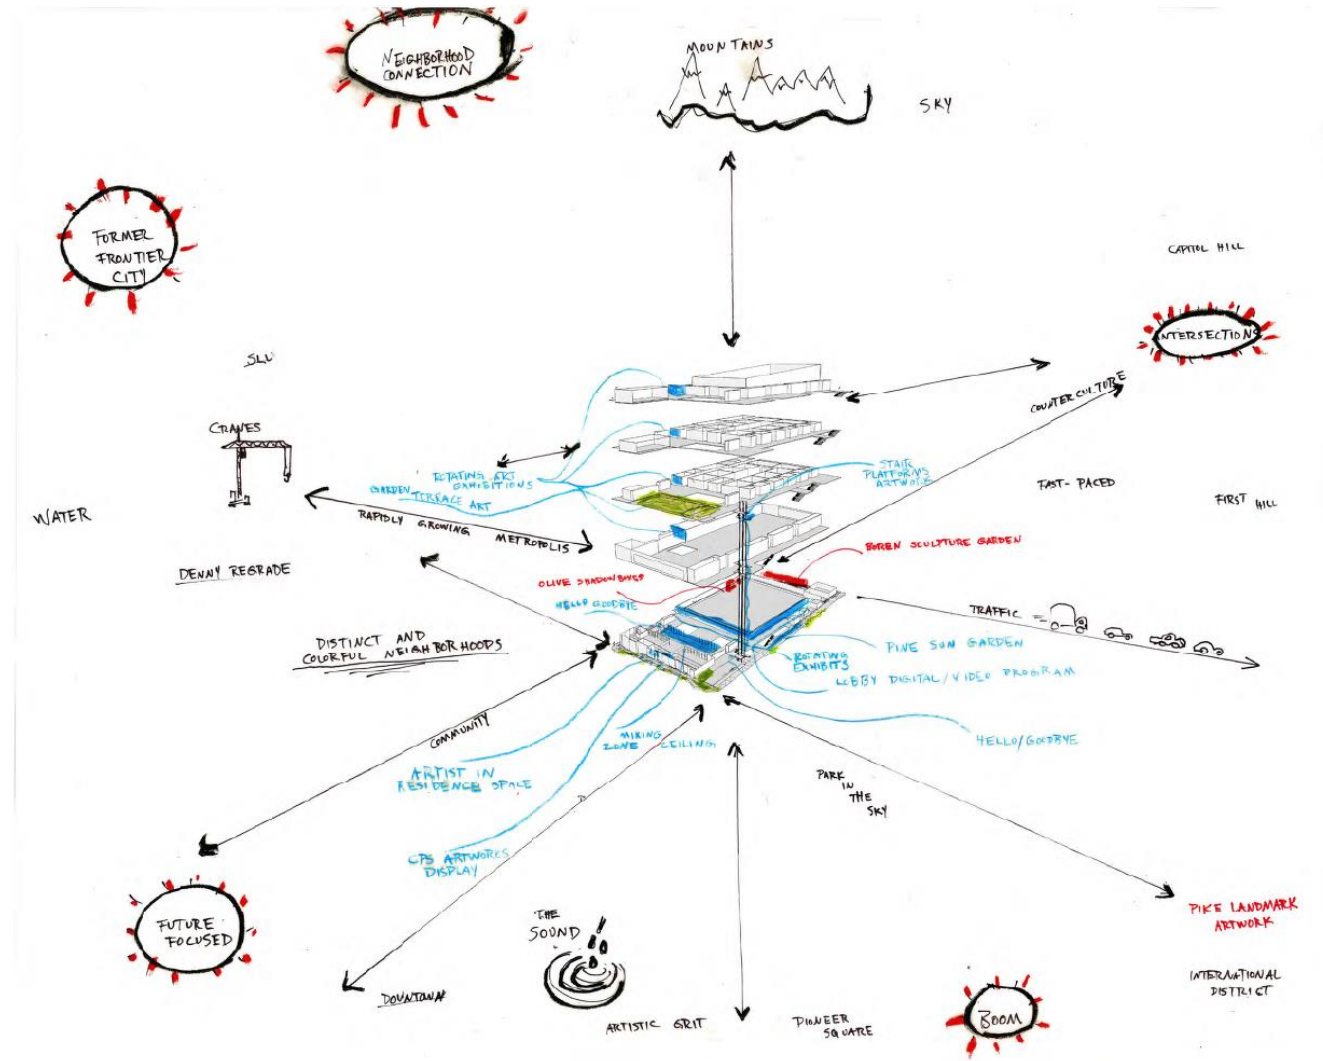 NEIGHBORHOOD
CONNECTION
MOUNTAINS
SKY
FORMER
FRONTIER
CITY
CAPITOL HILL
INTERSECTIONS
SLU
COUNTERCULTURE
CRANES
ROTATING ART
EXHIBITIONS
GARDEN TERRACE ART
STAIR
PLATFORMS
ARTWORK
FAST-PACED
FIRST HILL
WATER
RAPIDLY GROWING METROPOLIS
BOREN SCULPTURE GARDEN
DENNY REGRADE
OLIVE SHADOWBOXES
HELLO GOODBYE
TRAFFIC
DISTINCT AND
COLORFUL NEIGHBORHOODS
PINE SUN GARDEN
ROTATING
EXHIBITS
LOBBY DIGITAL/VIDEO PROGRAM
COMMUNITY
MIXING
ZONE CEILING
HELLO/GOODBYE
ARTIST IN
RESIDENCE SPACE
PARK
IN
THE
SKY
CPS ARTWORKS
DISPLAY
PIKE LANDMARK
ARTWORK
FUTURE
FOCUSED
THE
SOUND
DOWNTOWN
INTERNATIONAL
DISTRICT
ARTISTIC GRIT
PIONEER
SQUARE
BOOM